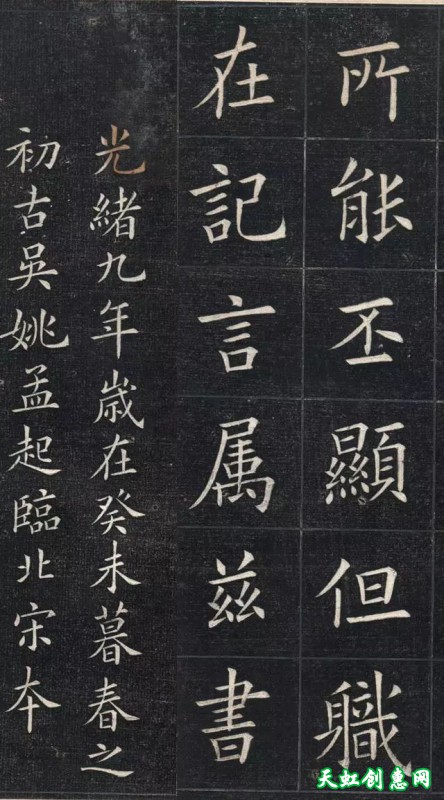 所能丕顯但職
在記言属兹書
光緒九年歲在癸未暮春之
初古吳姚孟起臨北宋本
天虹创惠网